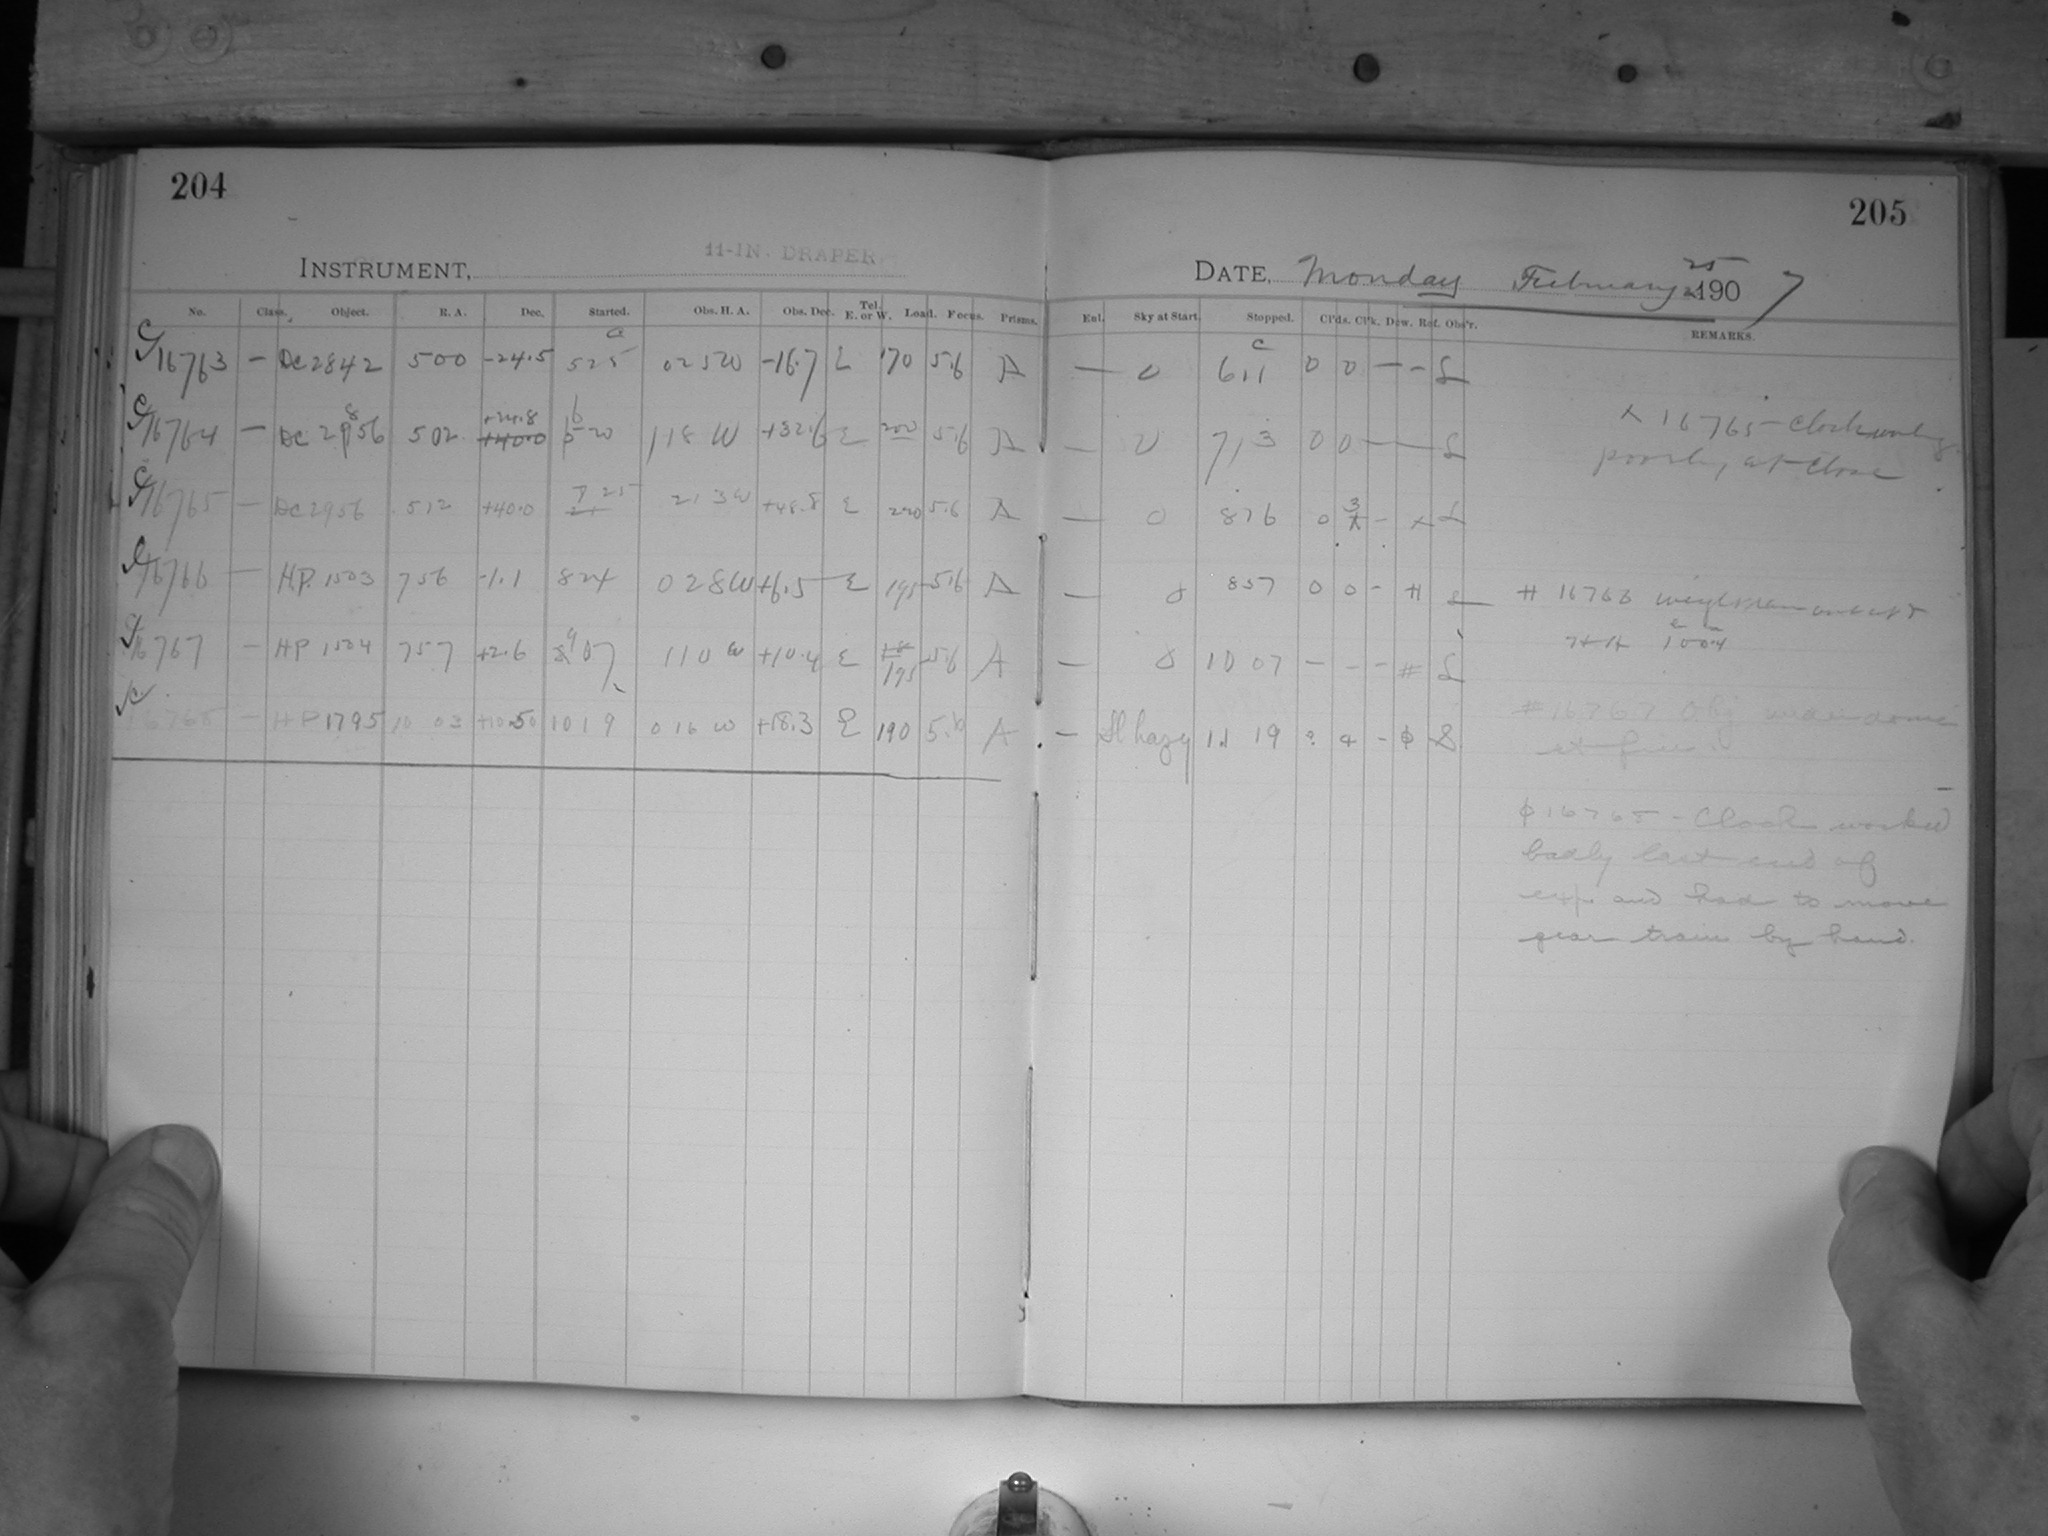 204
205
INSTRUMENT, 11-IN. DRAPER
DATE, Monday February 25 1907
No. Class. Object. R. A. Dec. Started. Obs. H. A. Obs. Dec. Tel. E. or W. Load. Focus. Prisms. Enl. Sky at Start. Stopped. Cl'ds. Cl'k. Dew. Ref. Obs'r. REMARKS.
C 16763 — DC 2842 5 00 -24.5 5 25 0 25 W -16.7 E 170 5.6 A — 0 6 11 0 0 — — L
C 16764 — DC 2856 5 02 +24.8 6 20 1 18 W +32.6 E 200 5.6 A — 0 7 13 0 0 — — L
C 16765 — DC 2956 5 12 +40.0 7 25 2 13 W +48.8 E 220 5.6 A — 0 8 16 0 3 — x L
16766 — H.P. 1503 7 56 -1.1 8 24 0 28 W +6.5 E 195 5.6 A — 0 8 57 0 0 - # L
16767 — HP 1504 7 57 +2.6 9 07 1 10 W +10.4 E 195 5.6 A — 0 10 07 — — — # L
16768 — HP 1795 10 03 +10.50 10 19 0 16 W +18.3 E 190 5.6 A — Sl hazy 11 19 - φ S
x 16765 - Clock working
poorly at close
# 16766
10 04
# 16767 Obj under dome
at
φ 16768 - Clock worked
badly last end of
exp. and had to move
gear train by hand.